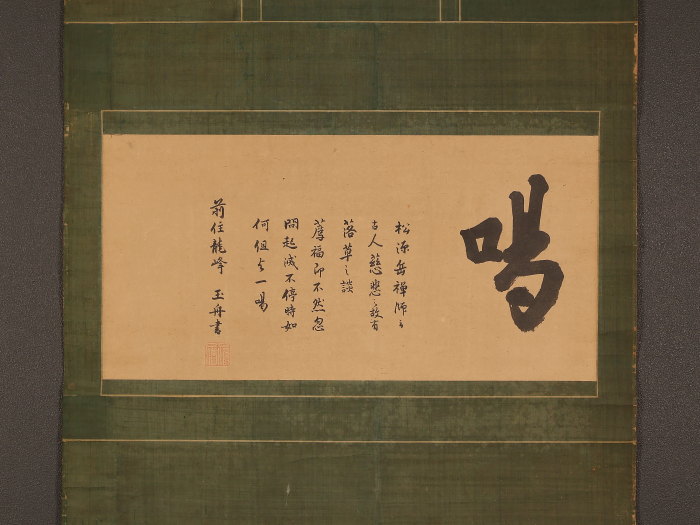 喝
松源岳禪師云
古人慈悲之故有
落草之談
薦福即不然忽
問起滅不停時如
何但与一喝
前住龍峰 玉舟書